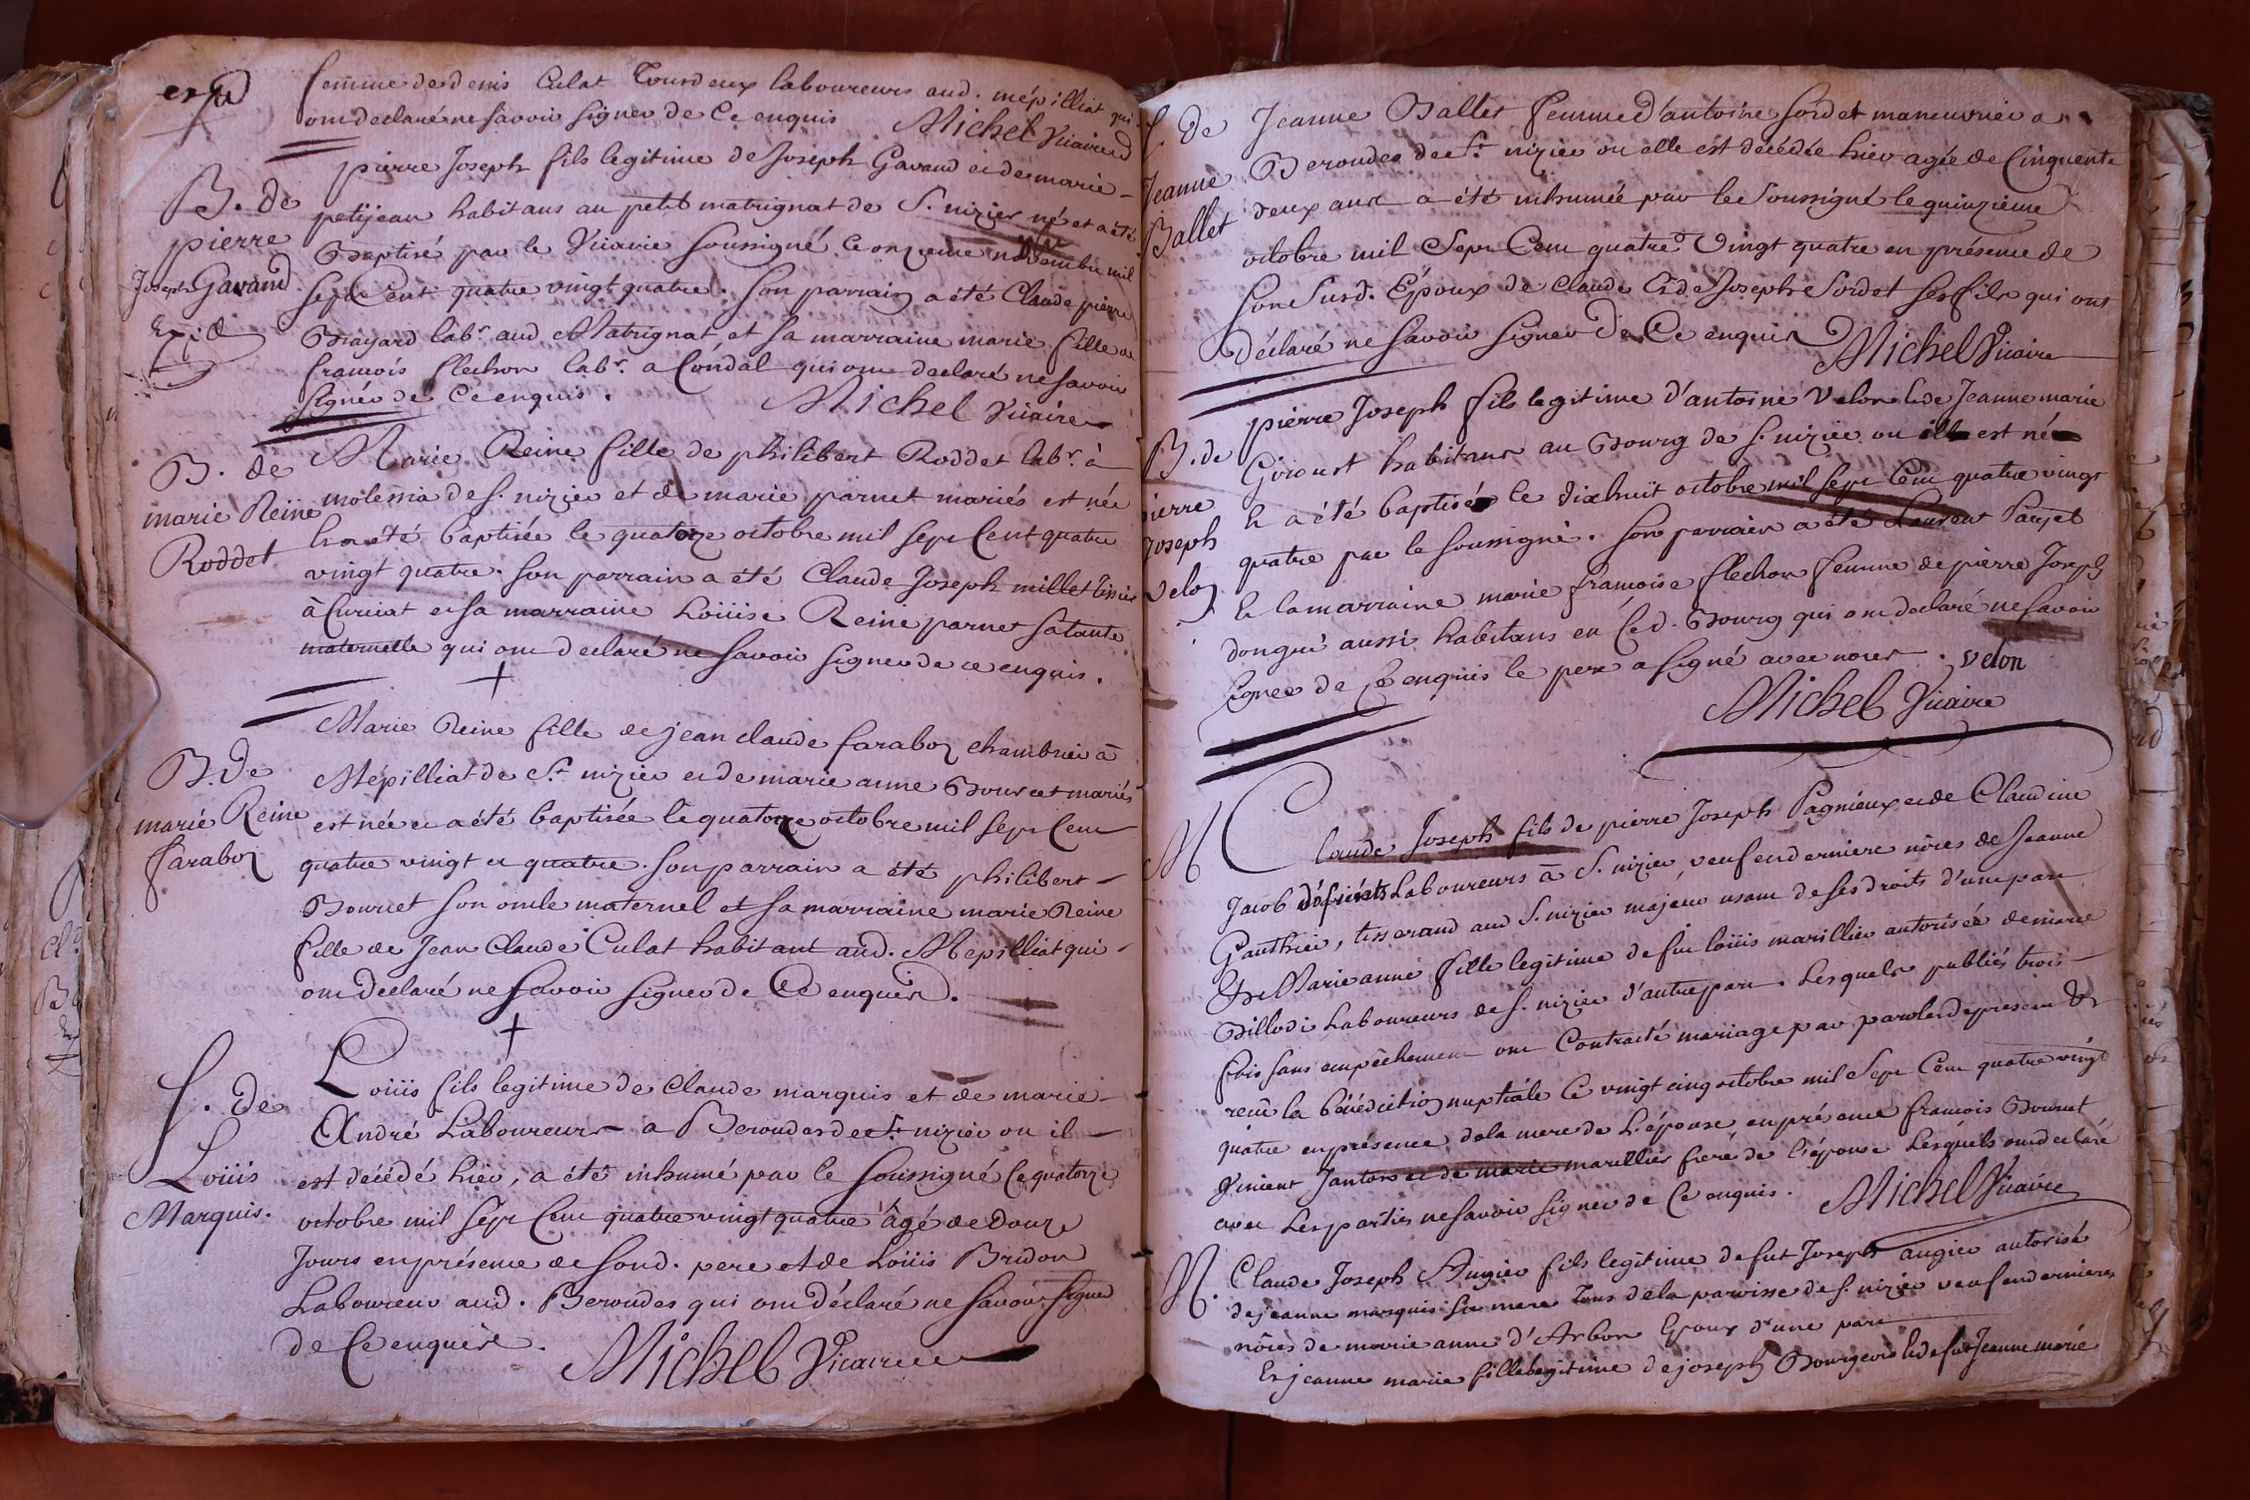 femme de denis Culat Tous deux laboureurs aud. mépilliat qui
ont declaré ne savoir signer de Ce enquis Michel Vicaire
B. de
pierre
Joseph Gavand
Expié
pierre Joseph fils legitime de Joseph Gavand et de marie
petijean habitans au petit matrignat de S. nizier né et a été
Baptisé par le Vicaire soussigné le onzieme novembre mil
sept Cent quatre vingt quatre. Son parrain a été Claude pierre
Brayard labr. aud. Matrignat et sa marraine marie fille de
francois flechon labr. a Condal qui ont declaré ne savoir
signer de Ce enquis.
Michel Vicaire
B. de
marie Reine
Roddet
Marie Reine fille de philibert Roddet labr. à
molessia de S. nizier et de marie parnet mariés est née
et a été baptisée le quatorze octobre mil sept Cent quatre
vingt quatre. son parrain a été Claude Joseph millet tissier
à Curciat et sa marraine Loüise Reine parnet sa tante
maternelle qui ont declaré ne savoir signer de ce enquis.
B. de
marie Reine
faraboz
Marie Reine fille de jean claude faraboz chambrier à
Mépilliat de St. nizier et de marie anne Bourcet mariés
est née et a été baptisée le quatorze octobre mil sept Cent
quatre vingt et quatre. son parrain a été philibert
Bourcet son oncle maternel et sa marraine marie Reine
fille de Jean Claude Culat habitant aud. Mepilliat qui
ont declaré ne savoir signer de Ce enquis.
S. de
Loüis
Marquis.
Loüis fils legitime de Claude marquis et de marie
André Laboureurs a Beroudes de St. nizier ou il
est décédé hier, a été inhumé par le soussigné le quatorze
octobre mil sept Cent quatre vingt quatre âgé de Douze
Jours en présence de sond. pere et de Loüis Bridon
Laboureur aud. Beroudes qui ont déclaré ne savoir signer
de Ce enquis.
Michel Vicaire
S. de
Jeanne
Ballet
Jeanne Ballet femme d'antoine sordet maneuvrier a
Beroudes de St. nizier ou elle est décédée hier agée de Cinquante
deux ans a été inhumée par le Soussigné le quinzieme
octobre mil Sept Cent quatre Vingt quatre en présence de
son susd. Epoux de Claude et de Joseph Sordet ses fils qui ont
déclaré ne savoir signer De Ce enquis
Michel Vicaire
B. de
pierre
Joseph
Velon
pierre Joseph fils legitime d'antoine Velon et de Jeanne marie
Giroust habitans au Bourg de S. nizier ou il est né
et a été baptisé le dixhuit octobre mil sept Cent quatre vingt
quatre par le soussigné. Son parrain a été Laurent Parjet
et la marraine marie francoise flechon femme de pierre Joseph
dongui aussi habitans en Ced. Bourg qui ont declaré ne savoir
signer de Ce enquis le pere a signé avec nous. Velon
Michel Vicaire
M
Claude Joseph fils de pierre Joseph Pagnieux et de Claudine
Jacob défunts Laboureurs à S. nizier, veuf en derniere nôces de Jeanne
Gauthier, tisserand aud S. nizier majeur usant de ses droits d'une part
Et Marie anne fille legitime de feu loüis marillier autorisée de marie
Billodi Laboureurs de S. nizier d'autre part. Lesquels publiés trois
fois sans empêchement ont Contracté mariage par paroles de present Et
recu la bénédiction nuptiale Ce vingt cinq octobre mil Sept Cent quatre vingt
quatre en présence de la mere de L'épouse en présence francois Bourcet
Vincent Janton et de marie marillier frere de l'épouse Lesquels ont declaré
avec Les parties ne savoir signer de Ce enquis. Michel Vicaire
M.
Claude Joseph Augier fils legitime de fut Joseph augier autorisé
de jeanne marquis sa mere Tous de la paroisse de S. nizier veuf en dernieres
nôces de marie anne d'Arbon Epoux d'une part
Et jeanne marie fille legitime de joseph Bourgeois et de fut Jeanne marie